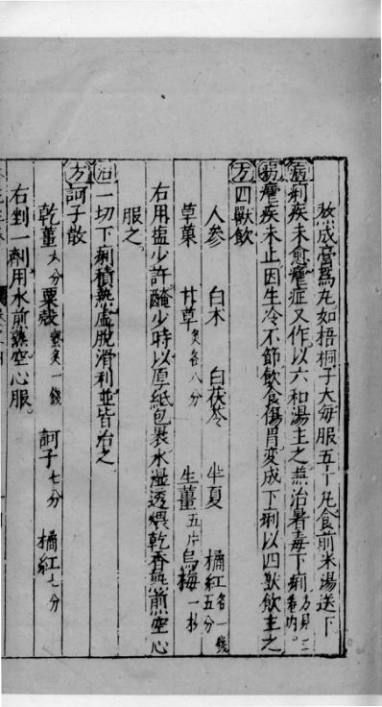 熬成膏爲丸如梧桐子大每服五十丸食前米湯送下
病痢疾未愈瘧症又作以六和湯主之兼治暑毒下痢方見二卷內。
病瘧疾未止因生冷不節飲食傷胃変成下痢以四獸飲主之
方四獸飲
人參 白木 白茯苓 半夏 橘紅各一錢五分
草菓 甘草炙各八分 生薑五片烏梅一枚
右用塩少許醃少時以厚紙包裹水溼透煨乾香熟煎空心
服之
治一切下痢積熱虛脫滑利並皆治之
方訶子散
乾薑六分粟殼蜜炙一錢 訶子七分 橘紅七分
右剉一劑用水煎熟空心服。